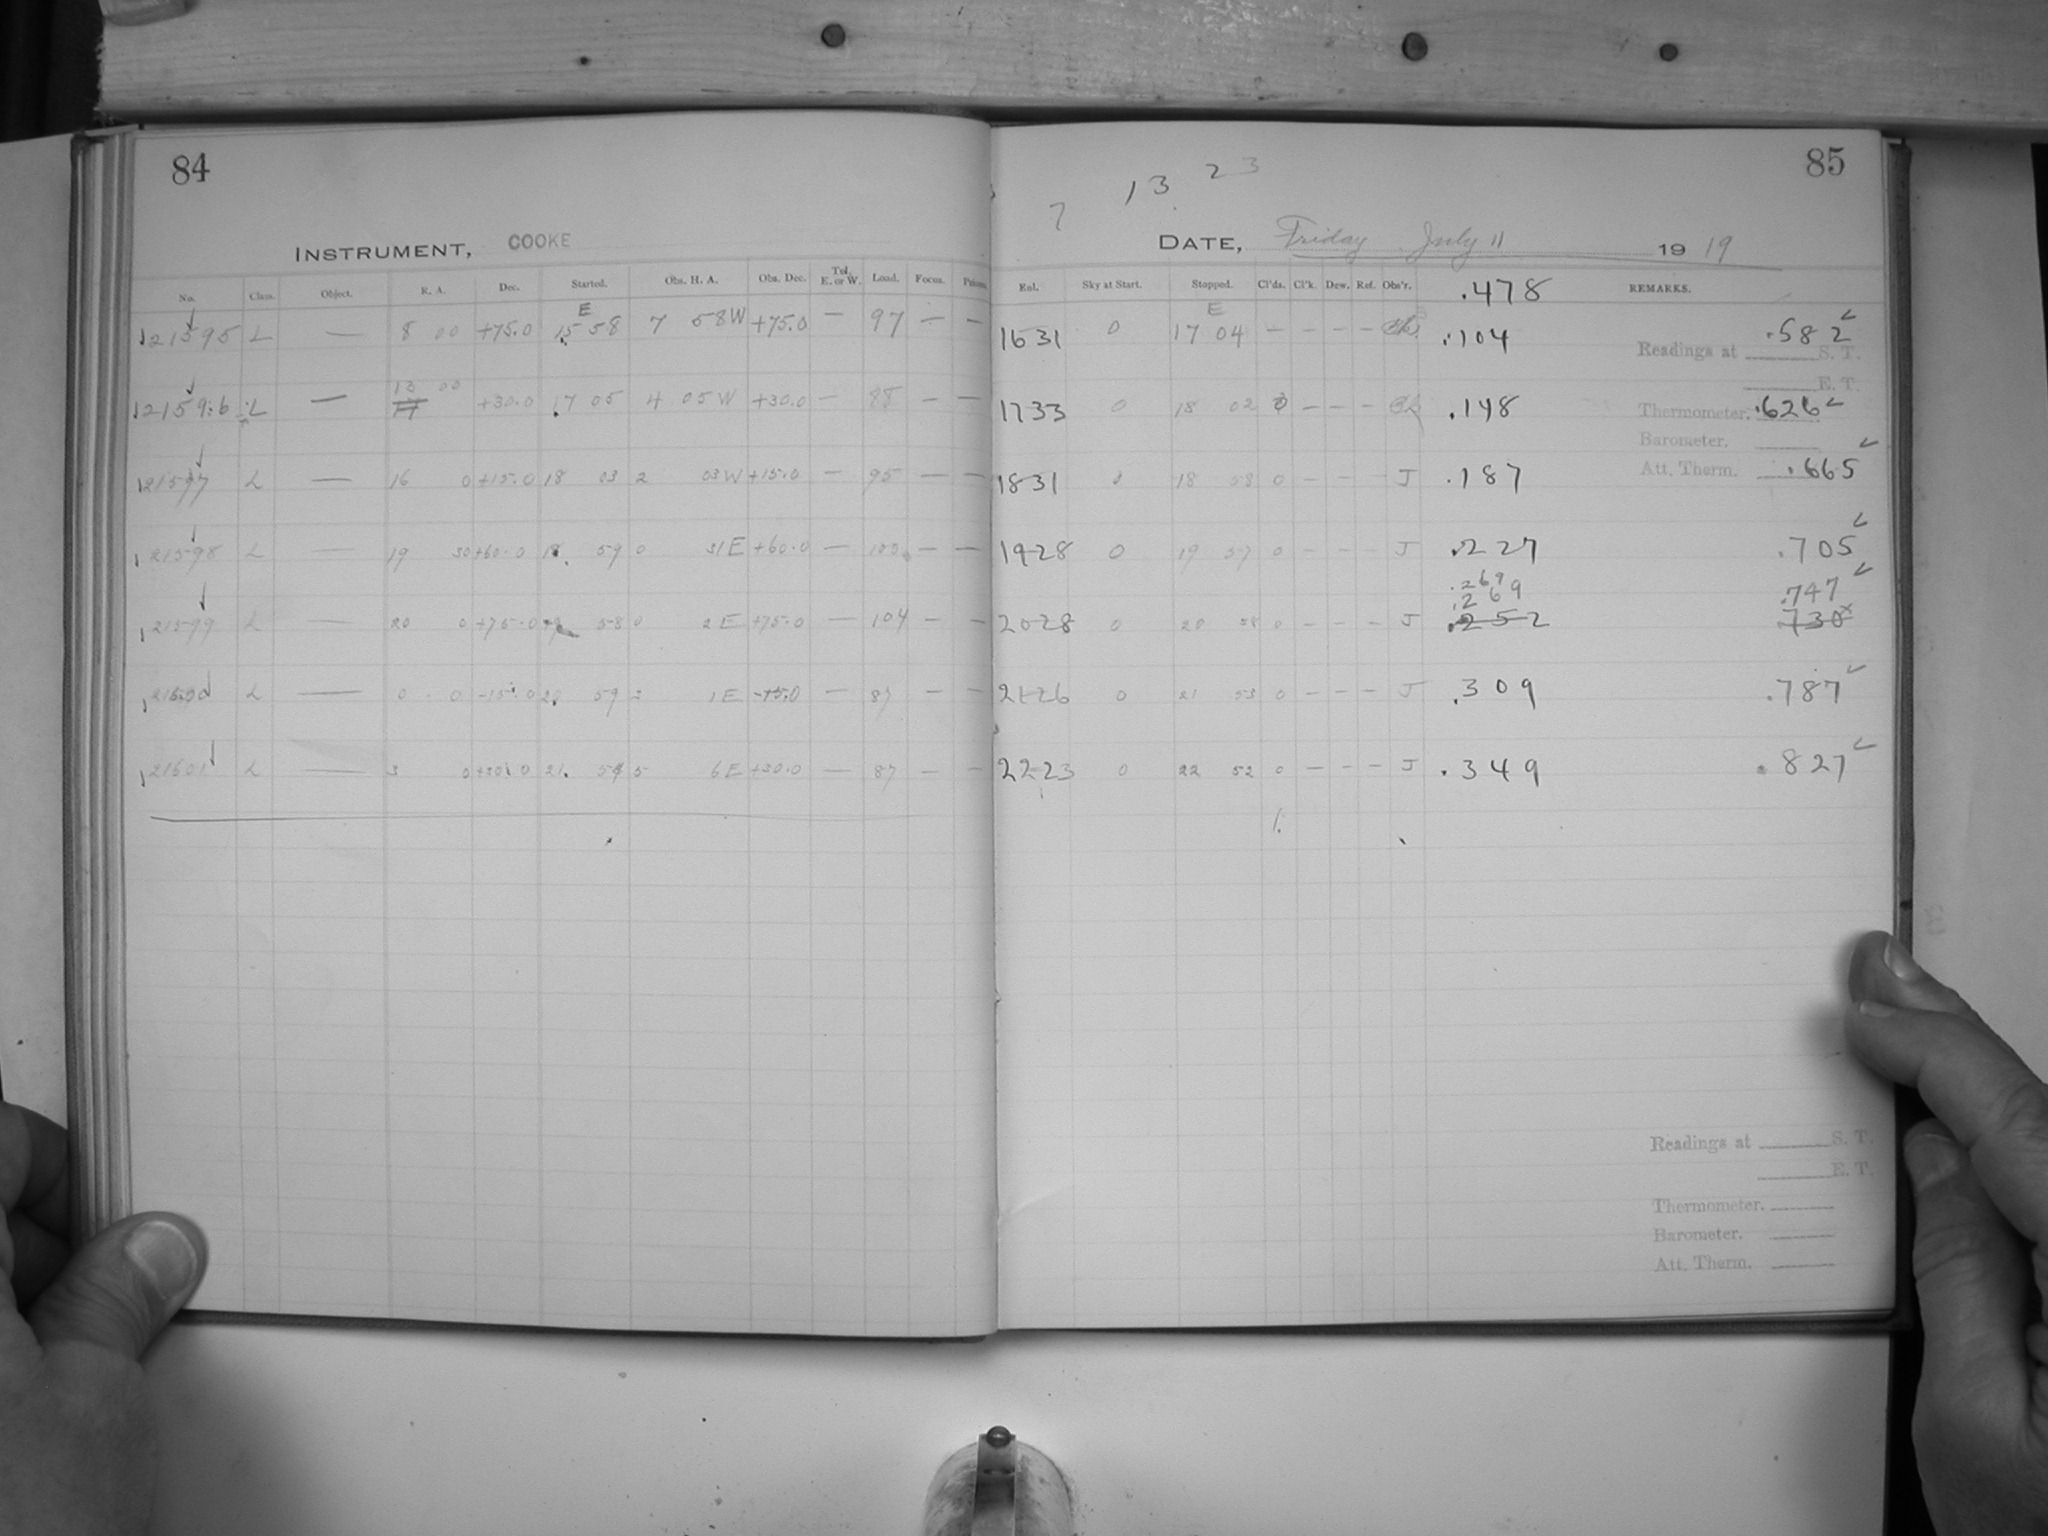 84
INSTRUMENT, COOKE
No. Class. Object. R. A. Dec. Started. Obs. H. A. Obs. Dec. Tel. E. or W. Load. Focus.
E
121595 L — 8 00 +75.0 15 58 7 58W +75.0 — 97 — —
13 00
121596 L — +30.0 17 05 4 05 W +30.0 — 88 — —
121597 L — 16 0 +15.0 18 03 2 03W +15.0 — 95 — —
121598 L — 19 30 +60.0 18 59 0 31E +60.0 — 100 — —
121599 L — 20 0 +75.0 58 0 2E +75.0 — 104 — —
L — 0 0 -15.0 20 59 1E -15.0 — 87 — —
121601 L — 3 0 +30.0 21 54 5 6E +30.0 — 87 — —
85
7 13 23
DATE, Friday July 11 1919
Enl. Sky at Start. Stopped. Cl'ds. Cl'k. Dew. Ref. Obs'r. .478 REMARKS.
E
1631 0 17 04 — — — — .104 .582
Readings at S. T.
E. T.
1733 0 18 02 0 — — — .148 Thermometer. .626
Barometer.
1831 0 18 58 0 — — — J .187 Att. Therm. .665
1928 0 19 57 0 — — — J .227 .705
.2699
.269 .747
2028 0 20 58 0 — — — J .252 .730
2126 0 21 53 0 — — — J .309 .787
2223 0 22 52 0 — — — J .349 .827
Readings at S. T.
E. T.
Thermometer.
Barometer.
Att. Therm.